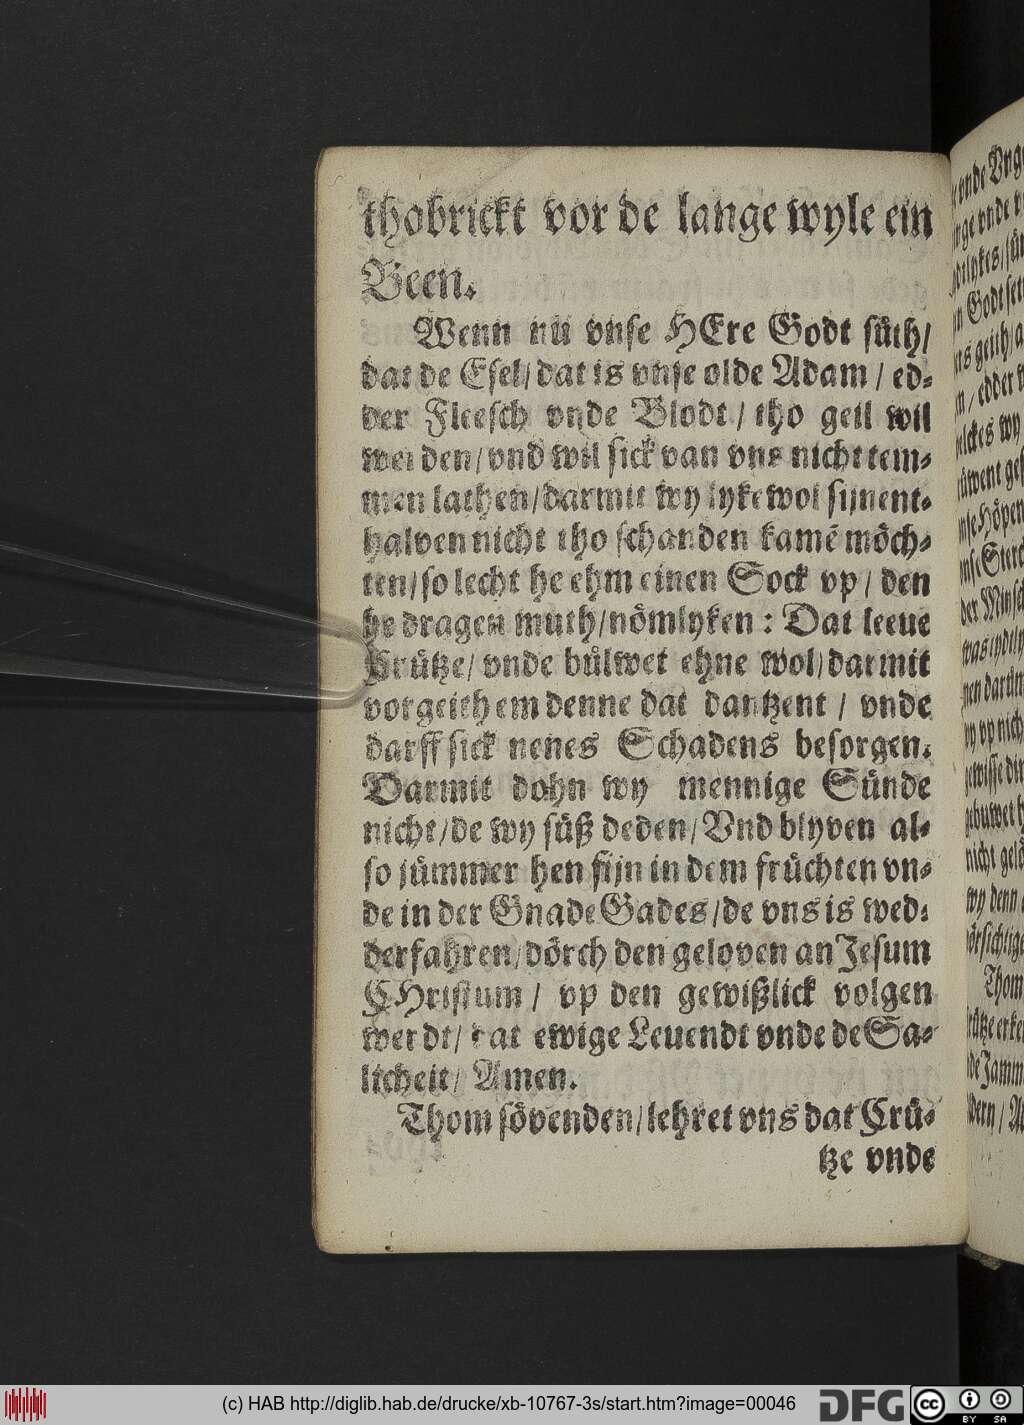 thobrickt vor de lange wyle ein
Been.
Wenn nu vnse HEre Godt süth/
dat de Esel/ dat is vnse olde Adam / ed-
der Fleesch vnde Blodt / tho geil wil
werden/ vnd wil sick van vns nicht tem-
men lathen/ darmit wy lykewol sijnent-
halven nicht tho schanden kamē möch-
ten/ so lecht he ehm einen Sock vp / den
he dragen muth/ nömlyken : Dat leeue
Crütze/ vnde bülwet ehne wol/ darmit
vorgeith em denne dat dantzent / vnde
darff sick nenes Schadens besorgen.
Darmit dohn wy mennige Sünde
nicht/ de wy süß deden/ Vnd blyven al-
so jümmer hen fijn in dem früchten vn-
de in der Gnade Gades/ de vns is wed-
derfahren/ dörch den geloven an Jesum
CHristum / vp den gewißlick volgen
werdt/ dat ewige Leuendt vnde de Sa-
licheit/ Amen.
Thom sövenden/ lehret vns dat Crü-
tze vnde
(c) HAB http://diglib.hab.de/drucke/xb-10767-3s/start.htm?image=00046
DFG
cc
BY SA